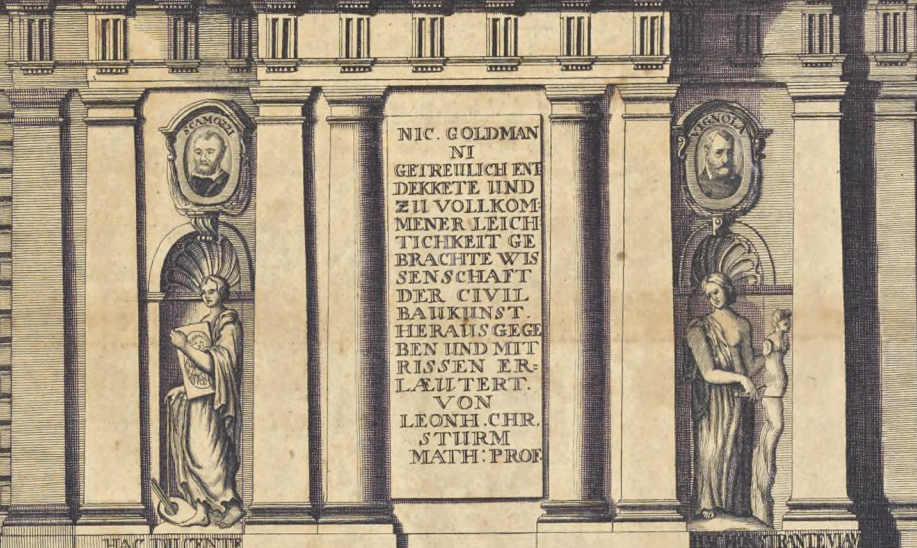 SCAMOZZI
VIGNOLA
NIC. GOLDMAN
NI
GETREULICH ENT
DEKKETE UND
ZU VOLLKOM:
MENER LEICH
TICHKEIT GE
BRACHTE WIS
SENSCHAFT
DER CIVIL
BAUKUNST.
HERAUSGEGE
BEN UND MIT
RISSEN ER=
LÆUTERT.
VON
LEONH. CHR.
STURM
MATH: PROF.
HAC DUCENTE